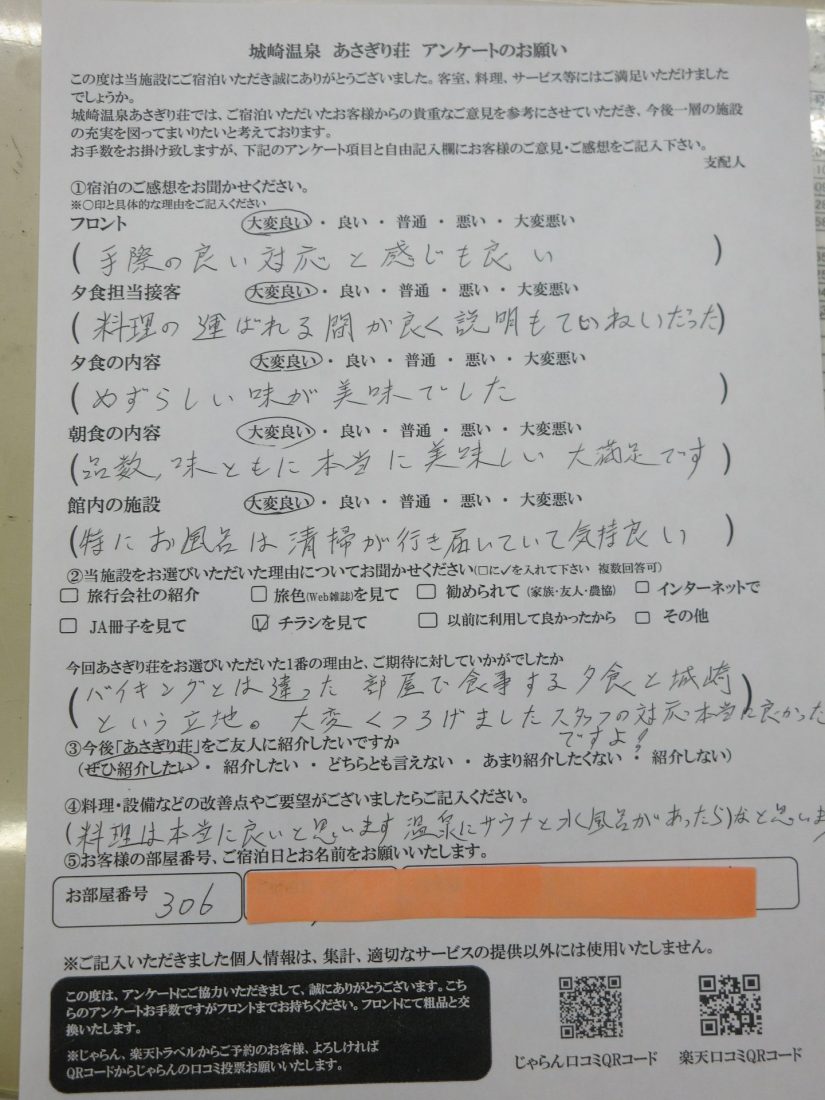 城崎温泉 あさぎり荘 アンケートのお願い
この度は当施設にご宿泊いただき誠にありがとうございました。客室、料理、サービス等にはご満足いただけました
でしょうか。
城崎温泉あさぎり荘では、ご宿泊いただいたお客様からの貴重なご意見を参考にさせていただき、今後一層の施設
の充実を図ってまいりたいと考えております。
お手数をお掛け致しますが、下記のアンケート項目と自由記入欄にお客様のご意見・ご感想をご記入下さい。
支配人
①宿泊のご感想をお聞かせください。
※○印と具体的な理由をご記入ください
フロント 大変良い ・ 良い ・ 普通 ・ 悪い ・ 大変悪い
(手際の良い対応と感じも良い)
夕食担当接客 大変良い ・ 良い ・ 普通 ・ 悪い ・ 大変悪い
(料理の運ばれる間が良く説明もていねいだった)
夕食の内容 大変良い ・ 良い ・ 普通 ・ 悪い ・ 大変悪い
(めずらしい味が美味でした)
朝食の内容 大変良い ・ 良い ・ 普通 ・ 悪い ・ 大変悪い
(品数,味ともに本当に美味しい 大満足です)
館内の施設 大変良い ・ 良い ・ 普通 ・ 悪い ・ 大変悪い
(特にお風呂は清掃が行き届いていて気持良い)
②当施設をお選びいただいた理由についてお聞かせください(□に✓を入れて下さい 複数回答可)
□ 旅行会社の紹介 □ 旅色(Web雑誌)を見て □ 勧められて(家族・友人・農協) □ インターネットで
□ JA冊子を見て ☑ チラシを見て □ 以前に利用して良かったから □ その他
今回あさぎり荘をお選びいただいた1番の理由と、ご期待に対していかがでしたか
(バイキングとは違った部屋で食事する夕食と城崎
という立地。大変くつろげましたスタッフの対応本当に良かった
ですよ!)
③今後「あさぎり荘」をご友人に紹介したいですか
(ぜひ紹介したい ・ 紹介したい ・ どちらとも言えない ・ あまり紹介したくない ・ 紹介しない)
④料理・設備などの改善点やご要望がございましたらご記入ください。
(料理は本当に良いと思います 温泉にサウナと水風呂があったら)なと思いま
⑤お客様の部屋番号、ご宿泊日とお名前をお願いいたします。
お部屋番号 306
※ご記入いただきました個人情報は、集計、適切なサービスの提供以外には使用いたしません。
この度は、アンケートにご協力いただきまして、誠にありがとうございます。こち
らのアンケートお手数ですがフロントまでお持ちください。フロントにて粗品と交
換いたします。
※じゃらん、楽天トラベルからご予約のお客様、よろしければ
QRコードからじゃらんの口コミ投票お願いいたします。
じゃらん口コミQRコード 楽天口コミQRコード